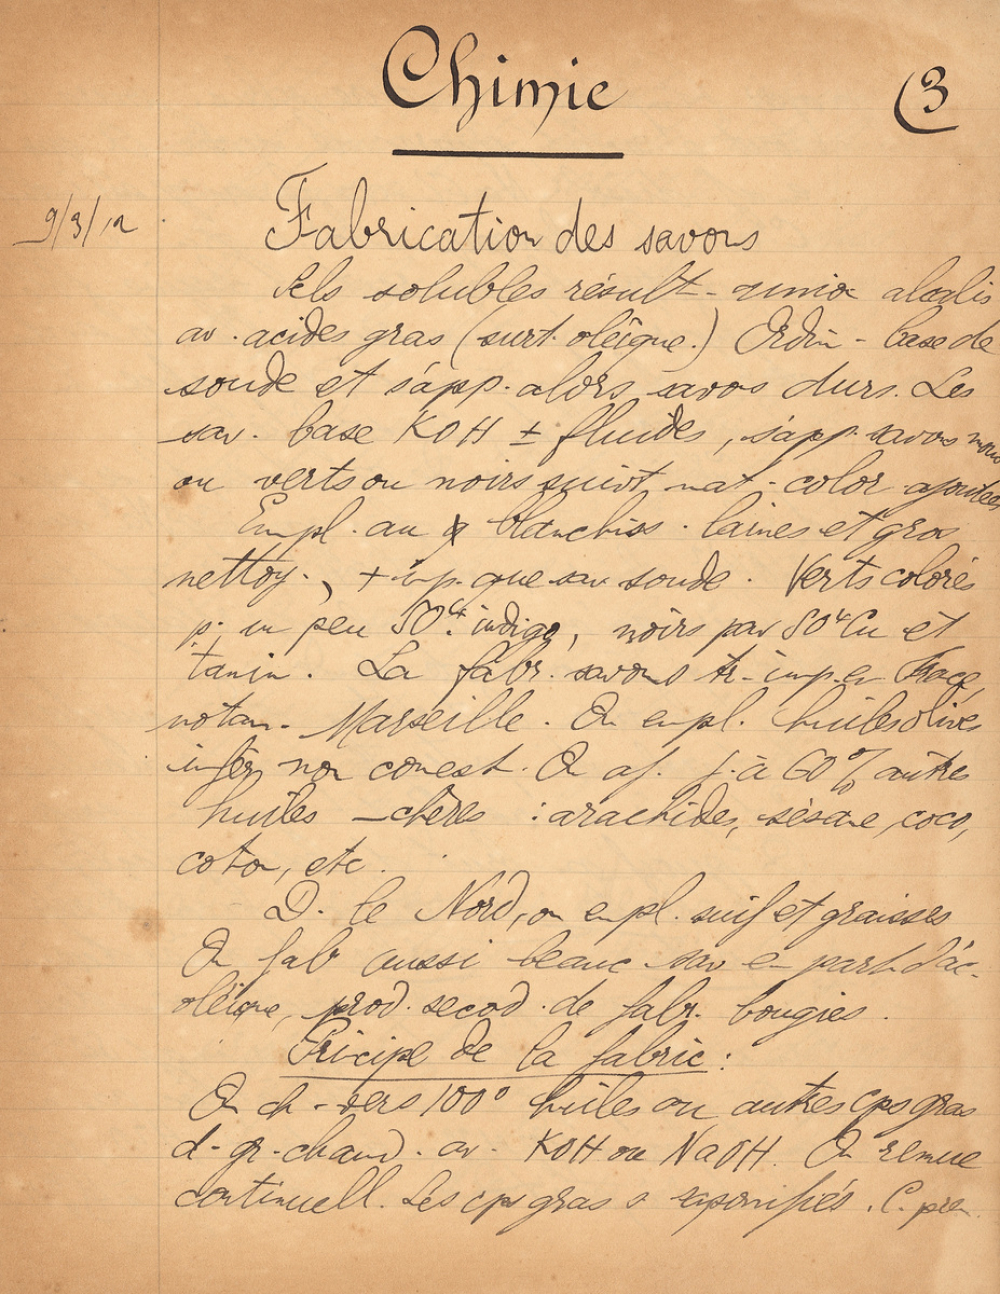 Chimie
(3
9/3/12
Fabrication des savons
Sels solubles result- union alcalis
av. acides gras (surt. oléique.) Ordin- base de
soude et s'app. alors savons durs. Les
sav. base KOH ± fluides, s'app. savons mous
ou verts ou noirs suivt mat- color ajoutées
Empl. au blanchiss. laines et gros
nettoy., + imp. que sav soude. Verts colorés
p. un peu SO4. indigo, noirs par SO4Cu et
tanin. La fabr. savons tr-imp. en France,
notam. Marseille. On empl. huiles olives
infér non comest. On aj. j. à 60% autres
huiles - chères : arachides, sésame, coco,
coton, etc.
D. le Nord, on empl. suif et graisses
On fab aussi beauc sav en part. d'ac-
oléique, prod. second. de fabr. bougies.
Principe de la fabric :
On ch- vers 100° huiles ou autres cps gras
d- gr-chaud. av. KOH ou NaOH. On remue
continuell. Les cps gras s saponifiés. C. pren